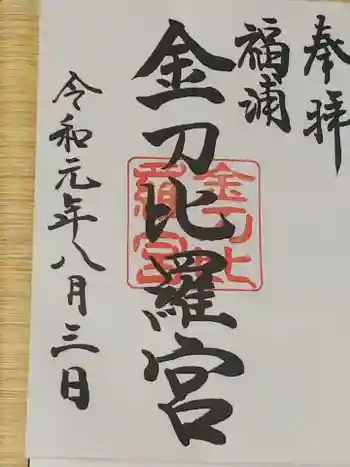 奉拝
福浦
金刀比羅宮
金刀比羅宮
令和元年八月三日